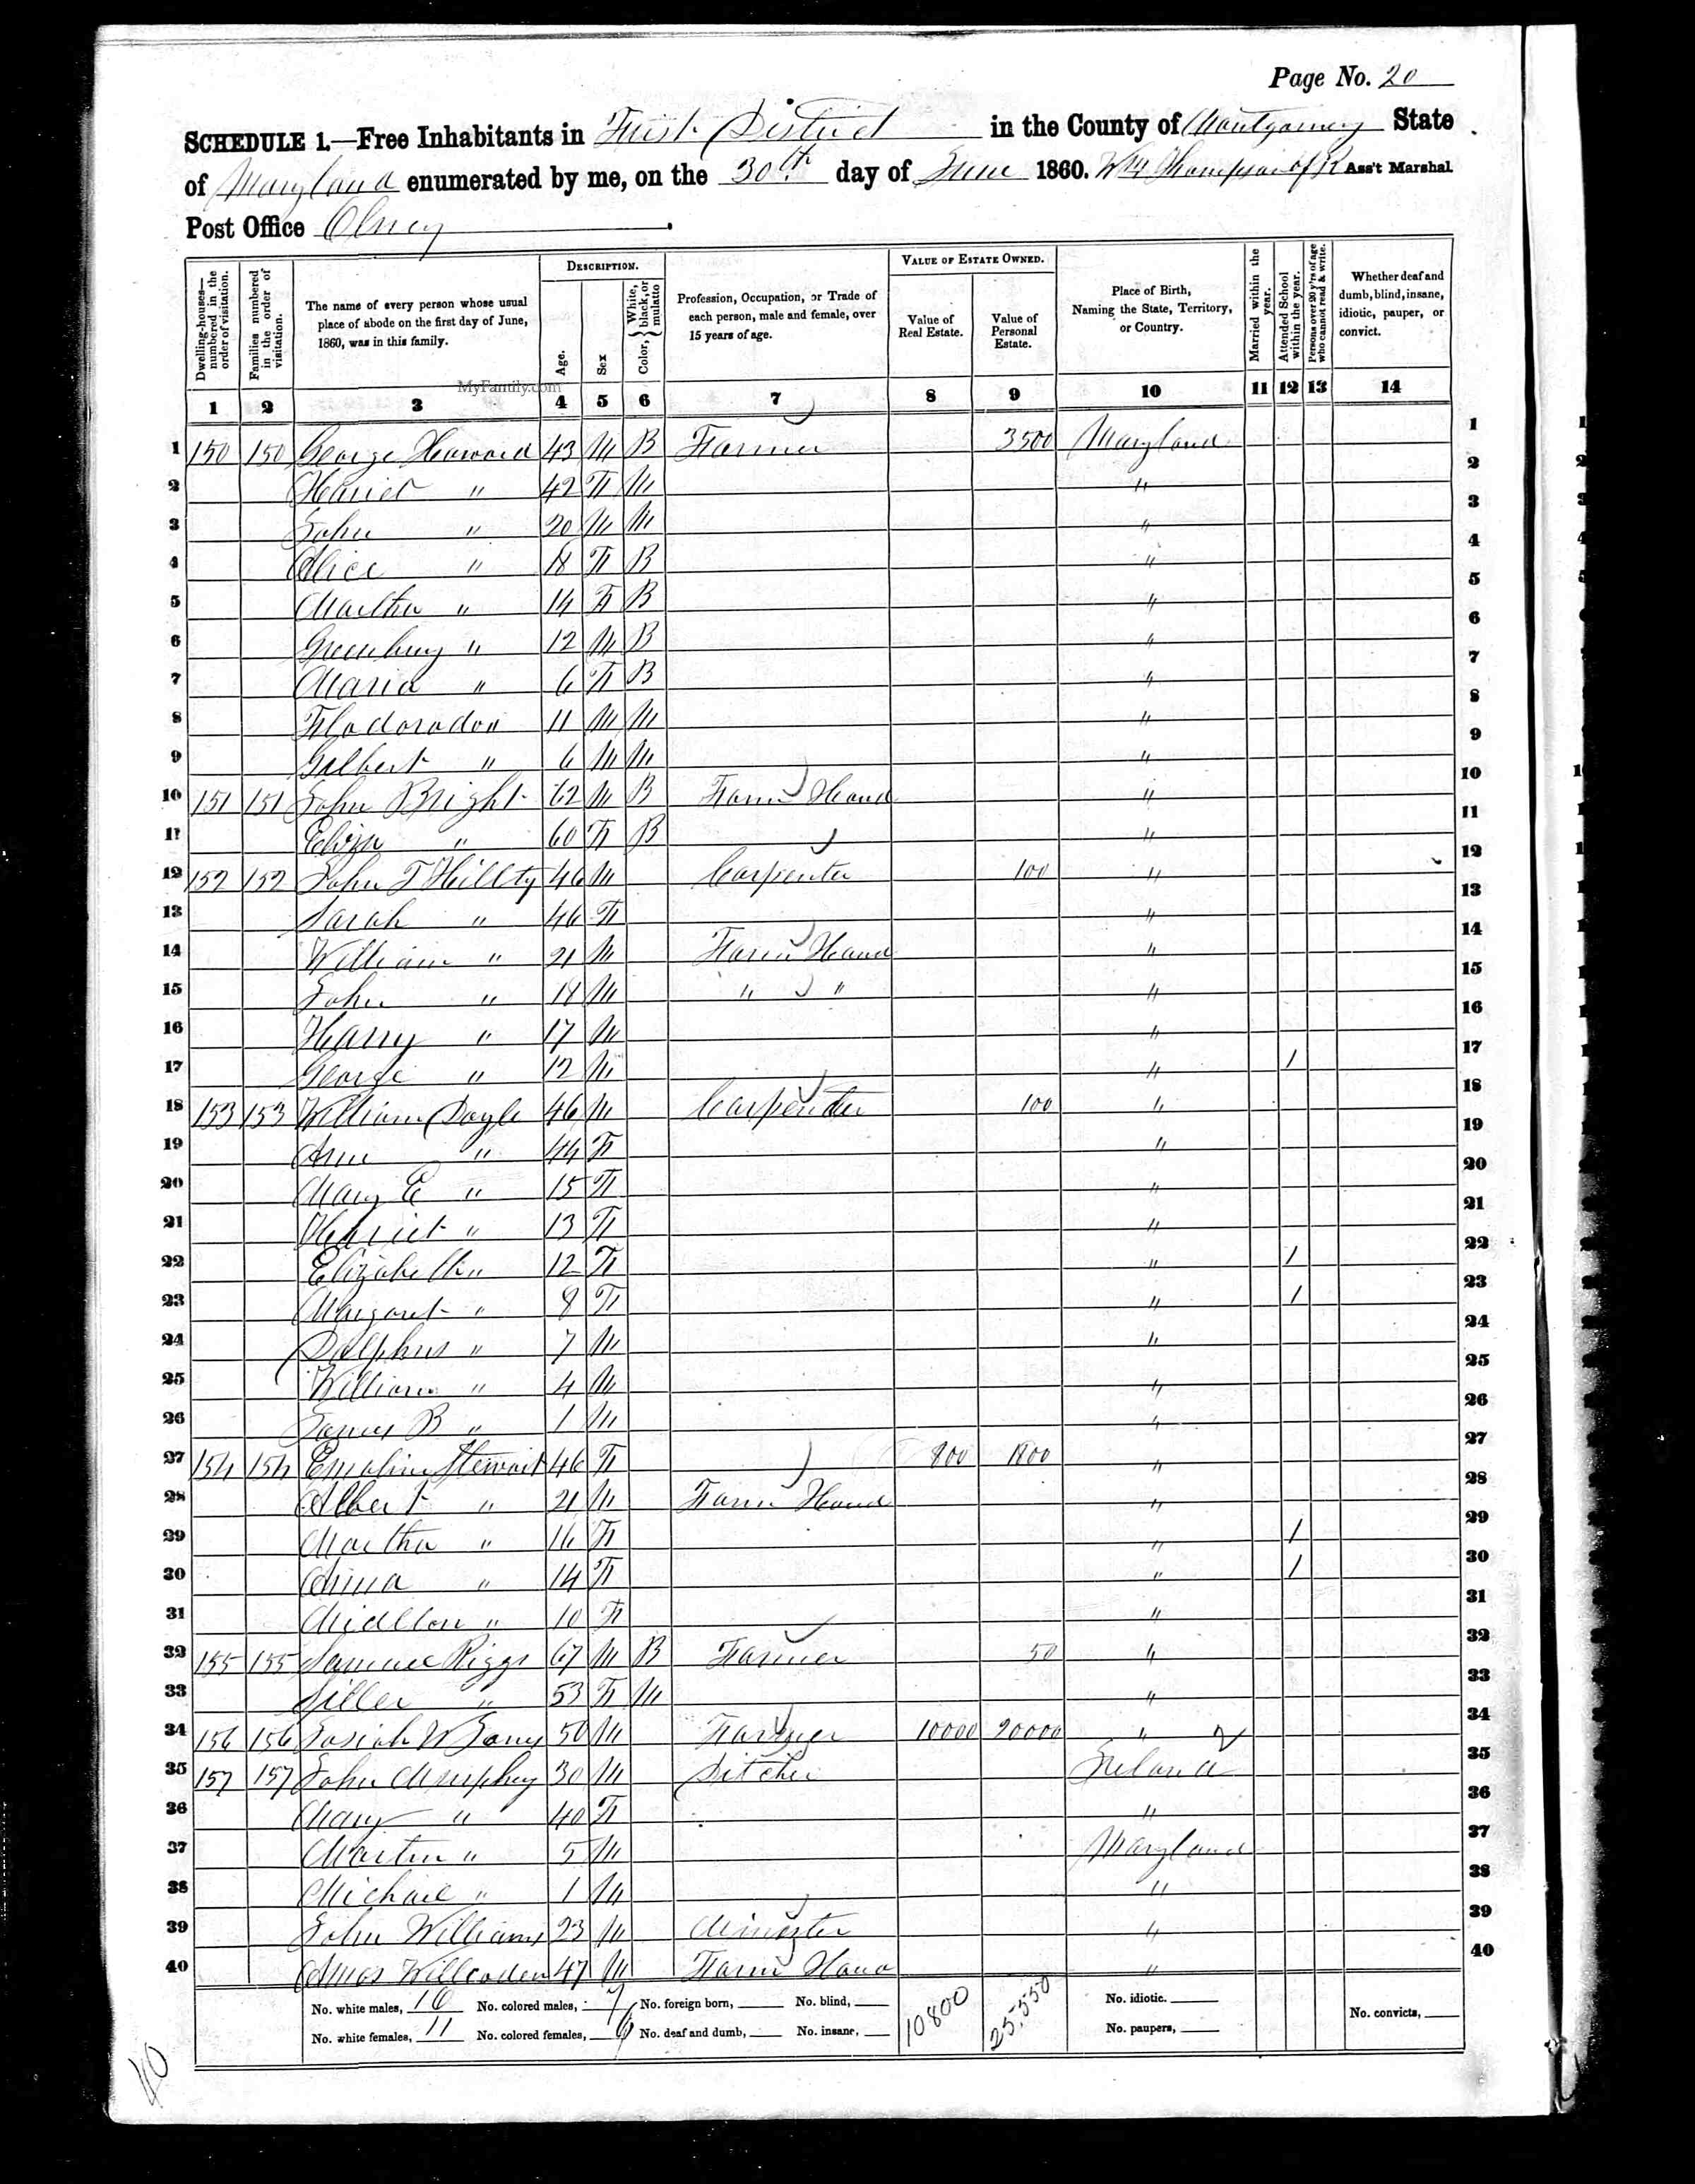 Page No. 20
SCHEDULE 1.—Free Inhabitants in First District in the County of Montgomery State
of Maryland enumerated by me, on the 30th day of June 1860. Wm Thompson of R Ass't Marshal
Post Office Olney
Dwelling-houses—numbered in the order of visitation.
Families numbered in the order of visitation.
The name of every person whose usual place of abode on the first day of June, 1860, was in this family.
DESCRIPTION.
Age.
Sex
Color, White, black, or mulatto
Profession, Occupation, or Trade of each person, male and female, over 15 years of age.
VALUE OF ESTATE OWNED.
Value of Real Estate.
Value of Personal Estate.
Place of Birth, Naming the State, Territory, or Country.
Married within the year.
Attended School within the year.
Persons over 20 y'rs of age who cannot read & write.
Whether deaf and dumb, blind, insane, idiotic, pauper, or convict.
MyFamily.com
1 2 3 4 5 6 7 8 9 10 11 12 13 14
1 150 150 George Howard 43 M B Farmer 3500 Maryland 1
2 Harriet " 42 F M " 2
3 John " 20 M M " 3
4 Alice " 18 F B " 4
5 Martha " 14 F B " 5
6 Greenbury " 12 M B " 6
7 Maria " 6 F B " 7
8 11 M M " 8
9 Gilbert " 6 M M " 9
10 151 151 John Bright 62 M B Farm Hand " 10
11 Eliza " 60 F B " 11
12 152 152 John T Hillty 46 M Carpenter 100 " 12
13 Sarah " 46 F " 13
14 William " 21 M Farm Hand " 14
15 John " 18 M " " " 15
16 Harry " 17 M " 16
17 George " 12 M " 1 17
18 153 153 William Doyle 46 M Carpenter 100 " 18
19 Ann " 44 F " 19
20 Mary E " 15 F " 20
21 Harriet " 13 F " 21
22 Elizabeth " 12 F " 1 22
23 Margaret " 8 F " 1 23
24 Dolphus " 7 M " 24
25 William " 4 M " 25
26 James B " 1 M " 26
27 154 154 Emaline Stewart 46 F 800 1800 " 27
28 Albert " 21 M Farm Hand " 28
29 Martha " 16 F " 1 29
30 Anna " 14 F " 1 30
31 " 10 F " 31
32 155 155 Samuel Riggs 67 M B Farmer 50 " 32
33 Siller " 53 F M " 33
34 156 156 Josiah W Jones 50 M Farmer 10000 20000 " 34
35 157 157 John Murphey 30 M Ditcher Ireland 35
36 Mary " 40 F " 36
37 Martin " 5 M Maryland 37
38 Michael " 1 M " 38
39 John Williams 23 M Minester " 39
40 Amos Willcoxen 47 M Farm Hand " 40
No. white males, 16 No. colored males, 7 No. foreign born, No. blind, 10800 25,550 No. idiotic.
No. white females, 11 No. colored females, 6 No. deaf and dumb, No. insane, No. paupers, No. convicts,
40